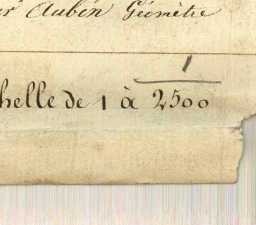 r Aubin Géomètre
1
helle de 1 à 2500